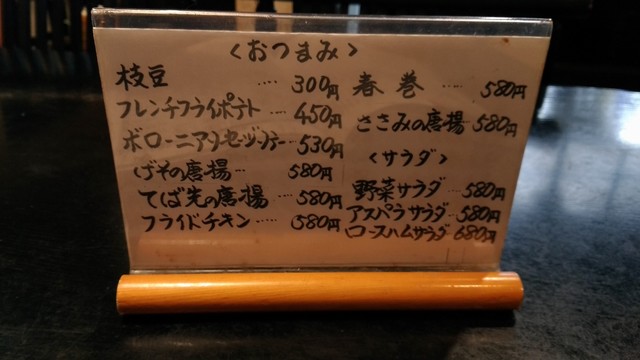 <おつまみ>
枝豆 ‥‥ 300円
フレンチフライポテト ‥‥ 450円
ボローニアソーセージソテー ‥ 530円
げその唐揚 ‥‥ 580円
てば先の唐揚 ‥‥ 580円
フライドチキン ‥‥‥ 580円
春巻 ‥‥‥ 580円
ささみの唐揚 580円
<サラダ>
野菜サラダ ‥‥ 580円
アスパラサラダ ‥‥ 580円
ロースハムサラダ 680円